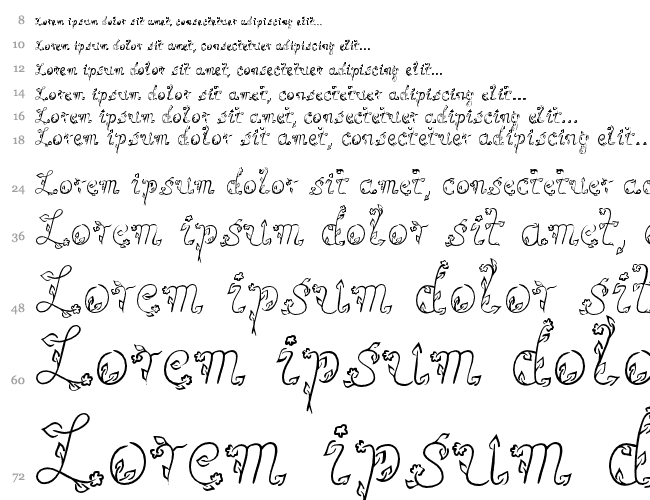 8 Lorem ipsum dolor sit amet, consectetuer adipiscing elit...
10 Lorem ipsum dolor sit amet, consectetuer adipiscing elit...
12 Lorem ipsum dolor sit amet, consectetuer adipiscing elit...
14 Lorem ipsum dolor sit amet, consectetuer adipiscing elit...
16 Lorem ipsum dolor sit amet, consectetuer adipiscing elit...
18 Lorem ipsum dolor sit amet, consectetuer adipiscing elit..
24 Lorem ipsum dolor sit amet, consectetuer ad
36 Lorem ipsum dolor sit amet,
48 Lorem ipsum dolor sit
60 Lorem ipsum dolo
72 Lorem ipsum d